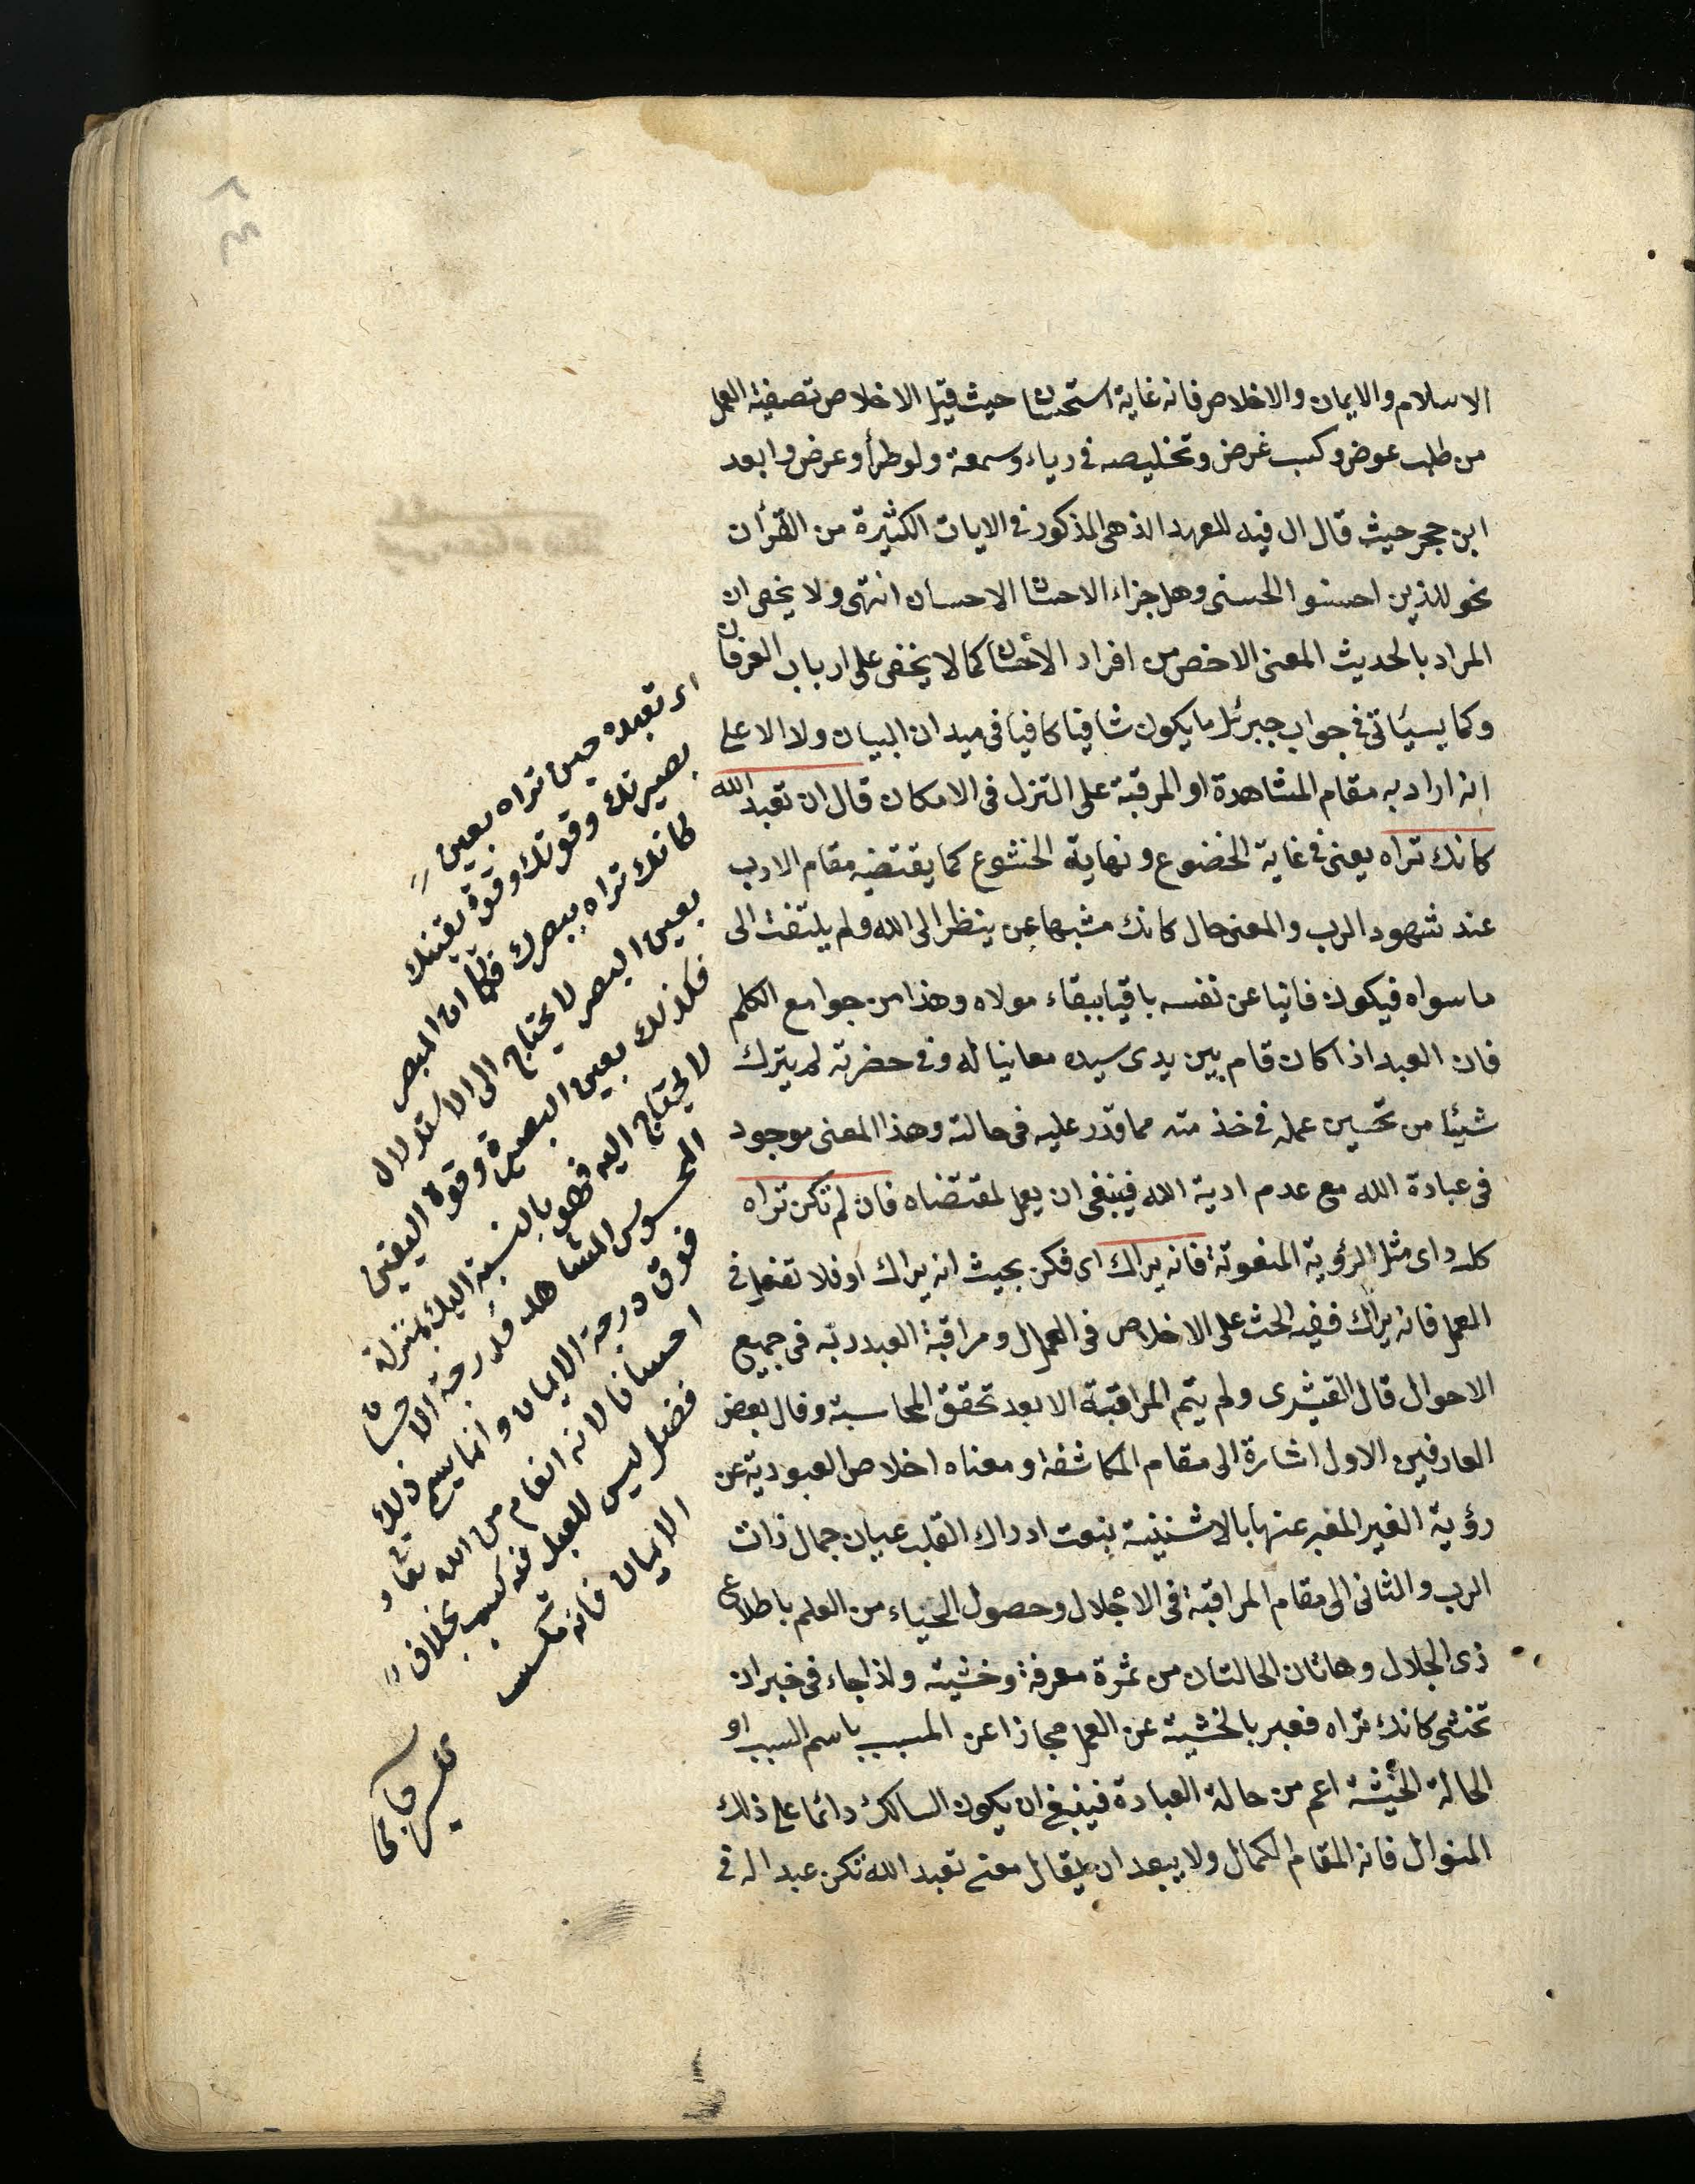 الاسلام والايمان والاخلاص فانه غاية استحسان حيث قيل الاخلاص تصفية العمل
من طلب عوض وكسب غرض وتخليصه فى رياء وسمعة ولو طرأ وعرض وابعد
ابن حجر حيث قال ال فيه للعهد الذهى المذكور فى الايات الكثيرة من القرأن
نحو للذين احسنو الحسنى وهل جزاء الاحسان الا الاحسان انتهى ولا يخفى ان
المراد بالحديث المعنى الاخص من افراد الأحسان كما لا يخفى على ارباب العرفان
وكما يسيأتى فى جواب جبرئل ما يكون شافيا كافيا فى ميدان البيان ولا الا على
انه اراد به مقام المشاهدة او المرقبة على التنزل فى الامكان قال ان تعبد الله
كانك تراه يعنى فى غاية الخضوع ونهاية الخشوع كما يقتضيه مقام الادب
عند شهود الرب والمعنى حال كانك مشبها عن ينظر الى الله ولم يلتفت الى
ما سواه فيكون فانيا عن نفسه باقيا ببقاء مولاه وهذا من جوامع الكلم
فان العبد اذا كان قام بين يدى سيده معانيا له وفى حضرته لم يترك
شيئا من تحسين عمله فى خذ مته مما قدر عليه فى حالته وهذا المعنى موجود
فى عبادة الله مع عدم ادية الله فينبغى ان يعمل لمقتضاه فان لم تكن تراه
كله داى مثل الرؤية المنعوتة فانه يراك اى فكن بحيث انه يراك او فلا تغفل فى
العمل فانه يراك ففيه الحث على الاخلاص فى العمال ومراقبة العبد ربه فى جميع
الاحوال قال القيشرى ولم يتم المراقبة الا بعد تحقق المحاسبة وقال بعض
العارفين الاول اشارة الى مقام المكاشفة ومعناه اخلاص العبودية عن
رؤية الغير المغبر عنها بالاشنينية بنعت ادراك القلب عيان جمال ذات
الرب والثانى الى مقام المراقبة فى الاجلال وحصول الحياء من العلم باطلاع
ذى الجلال وهاتان الحالتان من ثمرة معرفة وخشيته ولذا جاء فى خبر ان
تخشى كانك تراه فعبر بالخشية عن العمل مجازا عن المسبب باسم السبب او
الحالة الخيثة اعم من حالة العبادة فينبغى ان يكون السالك دائما على ذلك
المنوال فانه المقام الكمال ولا يبعد ان يقال معنى تعبد الله تكن عبدا له فى
اى تعبده حين تراه بعين
بصيرتك وقوتك وقوة يقينك
كانك تراه ببصرك فكما ان المبصر
بعين البصر لا يحتاج الى الاستدلال
فكذلك بعين البصيرة وقوة اليقين
لا يحتاج اليه فهو بالنسبة اليك بمنزلة
المحسوس المشاهد فدرجة الاحسان
فوق درجة الايمان وانما يسمى ذلك
احسانا لانه انعام من الله تعا و
فضل ليس للعبد فيه كسب بخلاف
الايمان فانه مكسب